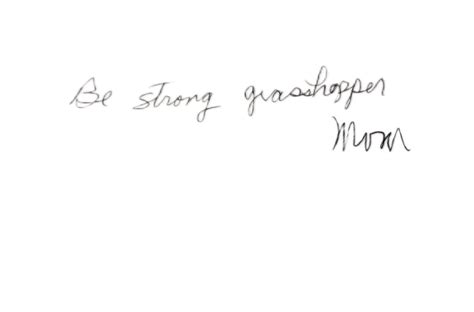 Be strong grasshopper
Mom